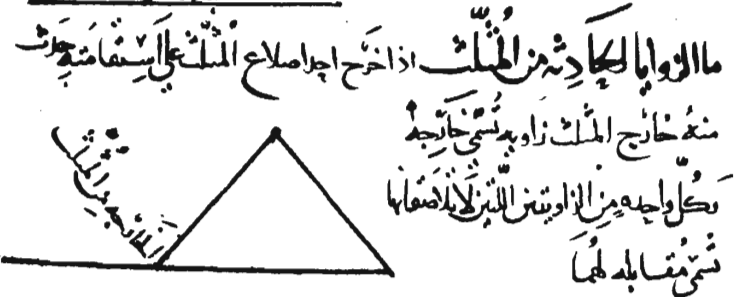 ما الزوايا الحادثه من المُثلّث اذا خَرَج احد اضلاع المُثلّث علي استقامته حدث
منهُ خارج المثلث زاويه تُسمّى خارجه
وكُلّ واحده مِن الزاويتين اللّتين
تُسمّى مُقابله لهُما
الخارجه من المثلث